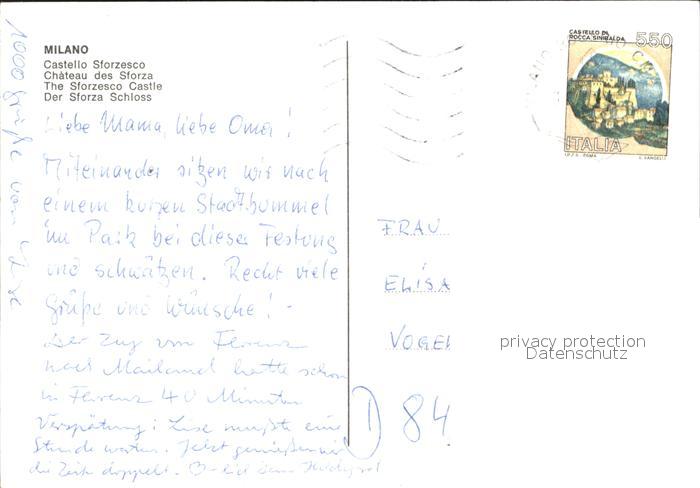 MILANO
Castello Sforzesco
Château des Sforza
The Sforzesco Castle
Der Sforza Schloss
Liebe Mama, liebe Oma!
Miteinander sitzen wir nach
einem kurzen Stadtbummel
im Park bei dieser Festung
und schwätzen. Recht viele
Grüße und Wünsche! -
Der Zug von Florenz
nach Mailand hatte schon
in Florenz 40 Minuten
Verspätung; Lise mußte eine
Stunde warten. Jetzt genießen wir
die Zeit doppelt.
1000 Grüße von Lise
CASTELLO DI
ROCCA SINIBALDA
550
ITALIA
I.P.Z.S. ROMA
FRAU
ELISA
VOGEL
privacy protection
Datenschutz
D 84